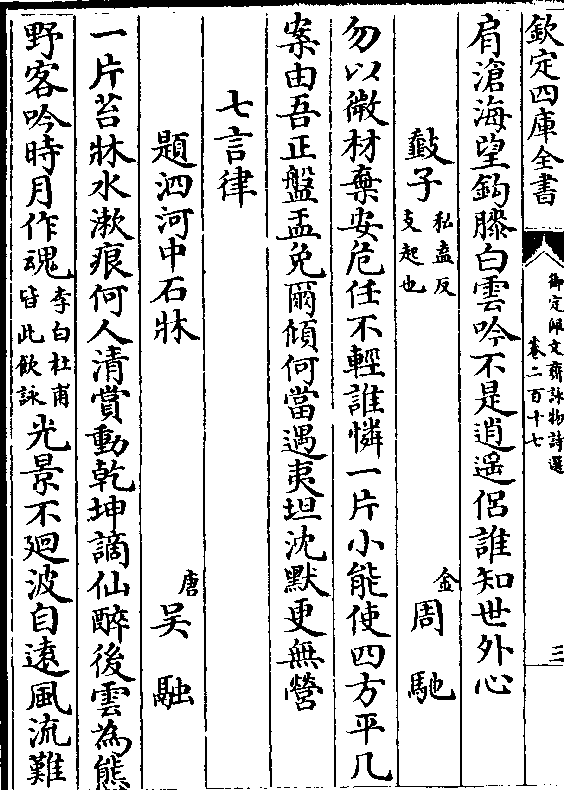 欽定四庫全書
御定佩文齋詠物詩選
卷二百十七
三
肩滄海望鈎膝白雲吟不是逍遥侶誰知世外心
㩻子私盍反支起也 金周馳
勿以微材棄安危任不輕誰憐一片小能使四方平几
案由吾正盤盂免爾傾何當遇夷坦沈默更無營
七言律
題泗河中石牀 唐吴融
一片苔牀水漱痕何人清賞動乾坤謫仙醉後雲為態
野客吟時月作魂李白杜甫皆此飲詠光景不廻波自逺風流難